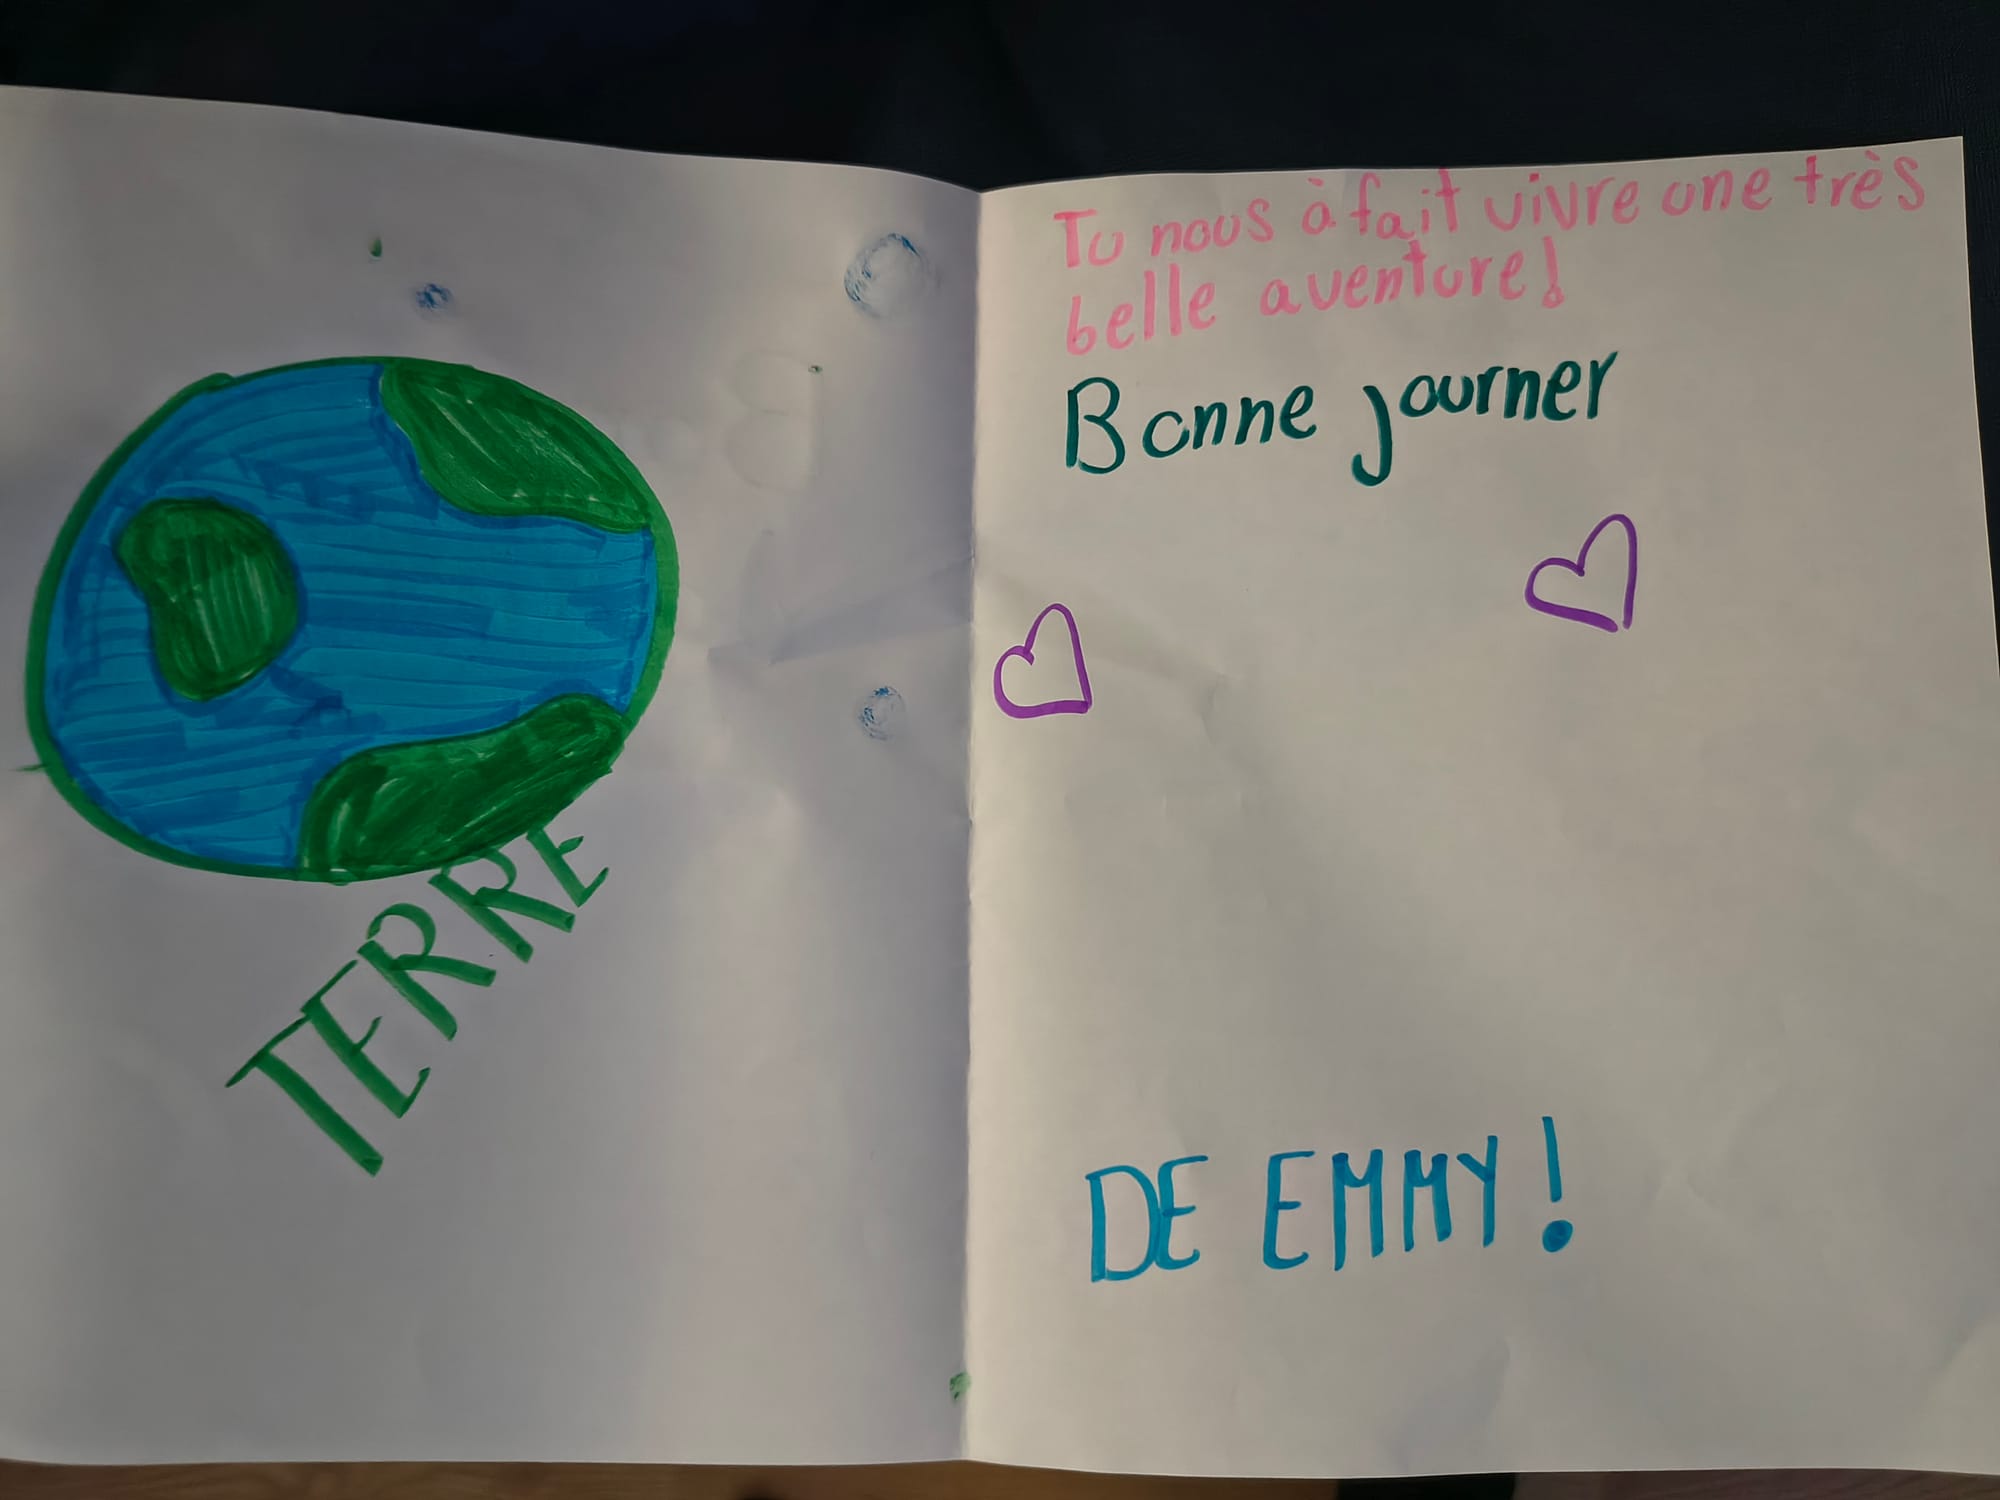 TERRE
Tu nous à fait vivre une très
belle aventure!
Bonne journer
DE EMMY!